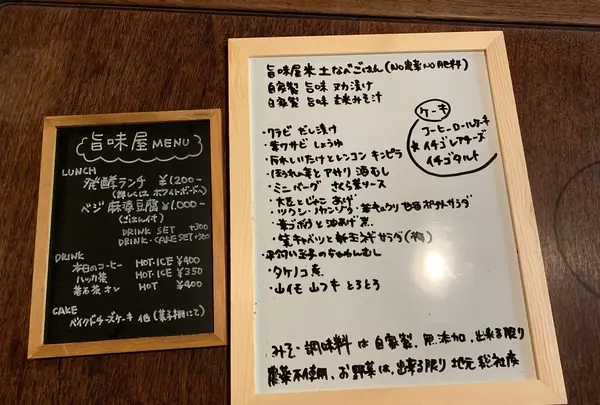 旨味屋 MENU
LUNCH
発酵ランチ ¥1,200-
(詳しくは ホワイトボードへ)
ベジ 麻婆豆腐 ¥1,000-
(ごはん付)
DRINK SET +300
DRINK・CAKE SET
DRINK
本日のコーヒー HOT・ICE ¥400
ハック茶 HOT・ICE ¥350
オレ HOT ¥400
CAKE
ベイクドチーズケーキ 他 (菓子棚にて)
旨味屋米 土なべごはん (NO農薬 NO肥料)
自家製 旨味 ヌカ漬け
自家製 旨味 玄米みそ汁
ケーキ
コーヒーロールケーキ
イチゴレアチーズ
イチゴタルト
・ワラビ だし漬け
・葉ワサビ しょうゆ
・原木しいたけとレンコン キンピラ
・ほうれん草と アサリ 酒むし
・ミニバーグ さくら葉ソース
・大豆とじゃこ あげ
・ポテトサラダ
・ゴボウと 油あげ 煮
・キャベツと 新玉ネギ サラダ
・平飼い玉子の ちゃわんむし
・タケノコ煮
・山イモ 山フキ とろとろ
みそ・調味料 は 自家製、無添加、出来る限り
農薬不使用、お野菜は、出来る限り 地元 総社産